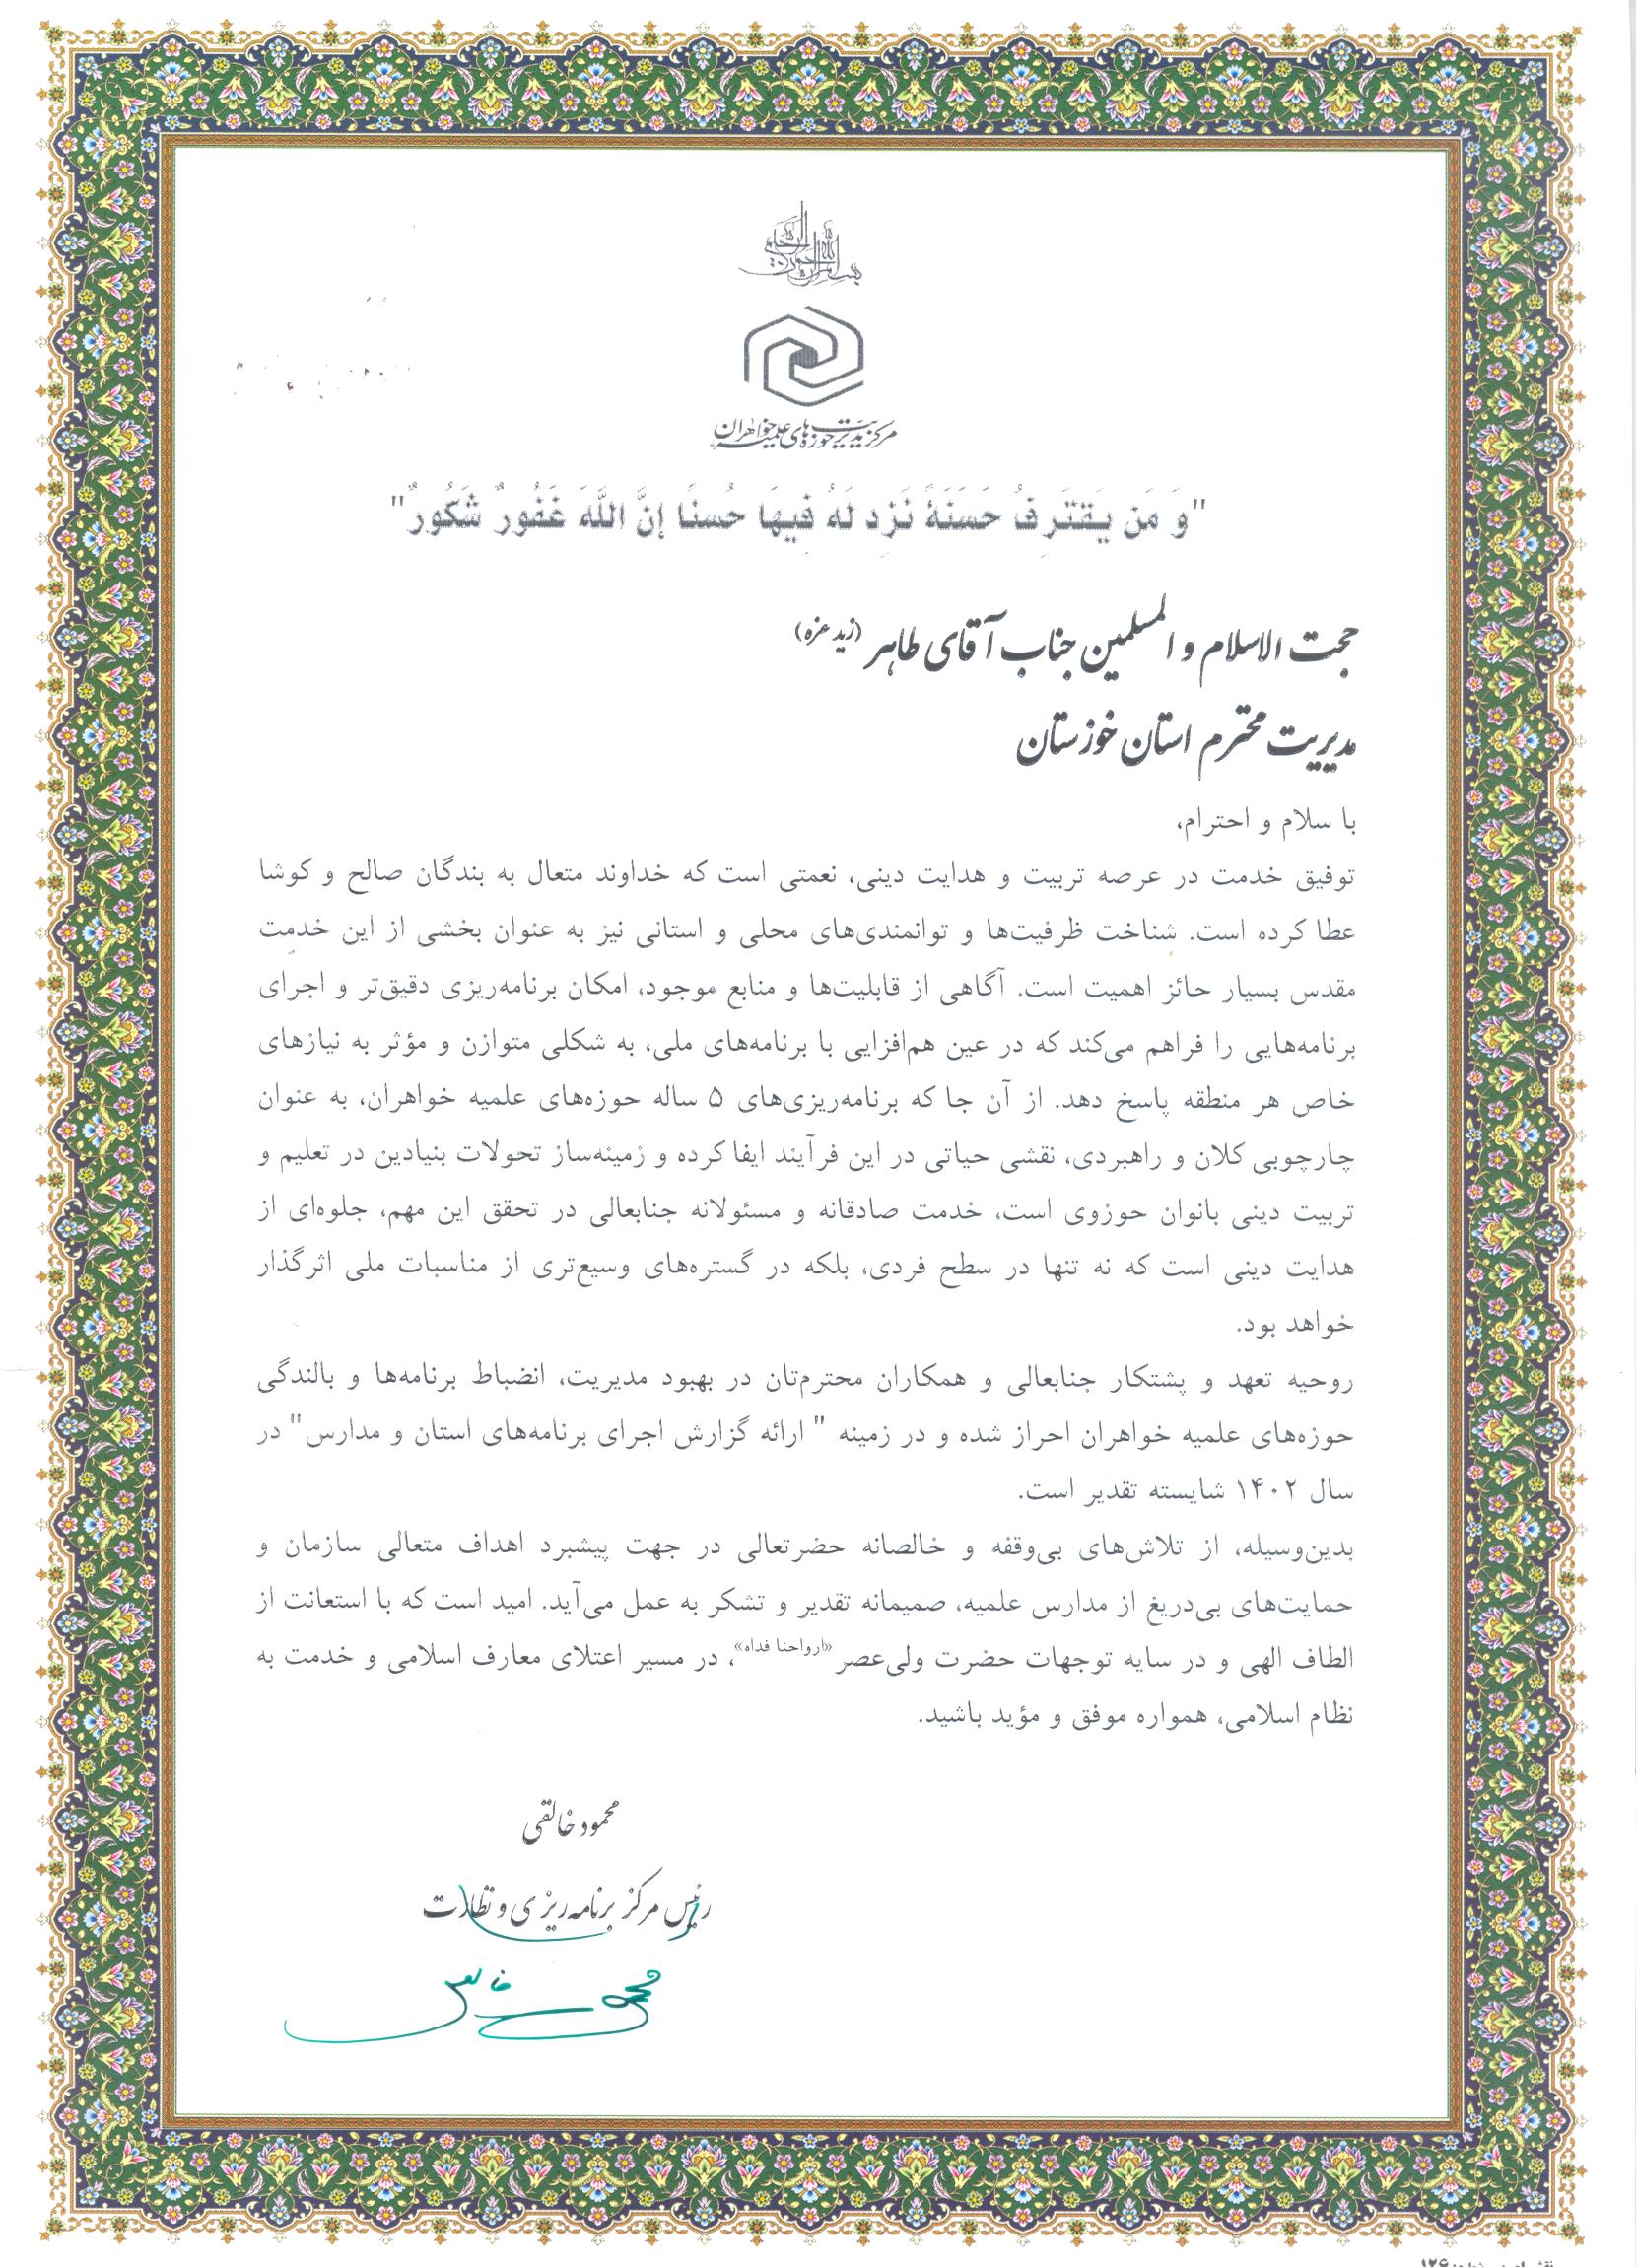 بسم الله الرحمن الرحیم
مرکز مدیریت حوزه‌های علمیه خواهران
"وَ مَن یَقتَرِفُ حَسَنَةً نَزِد لَهُ فِیهَا حُسنًا إنَّ اللَّهَ غَفُورٌ شَکُورٌ"
حجت الاسلام و المسلمین جناب آقای طاهر (زید عزه)
مدیریت محترم استان خوزستان
با سلام و احترام،
توفیق خدمت در عرصه تربیت و هدایت دینی، نعمتی است که خداوند متعال به بندگان صالح و کوشا
عطا کرده است. شناخت ظرفیت‌ها و توانمندی‌های محلی و استانی نیز به عنوان بخشی از این خدمت
مقدس بسیار حائز اهمیت است. آگاهی از قابلیت‌ها و منابع موجود، امکان برنامه‌ریزی دقیق‌تر و اجرای
برنامه‌هایی را فراهم می‌کند که در عین هم‌افزایی با برنامه‌های ملی، به شکلی متوازن و مؤثر به نیازهای
خاص هر منطقه پاسخ دهد. از آن جا که برنامه‌ریزی‌های ۵ ساله حوزه‌های علمیه خواهران، به عنوان
چارچوبی کلان و راهبردی، نقشی حیاتی در این فرآیند ایفا کرده و زمینه‌ساز تحولات بنیادین در تعلیم و
تربیت دینی بانوان حوزوی است، خدمت صادقانه و مسئولانه جنابعالی در تحقق این مهم، جلوه‌ای از
هدایت دینی است که نه تنها در سطح فردی، بلکه در گستره‌های وسیع‌تری از مناسبات ملی اثرگذار
خواهد بود.
روحیه تعهد و پشتکار جنابعالی و همکاران محترم‌تان در بهبود مدیریت، انضباط برنامه‌ها و بالندگی
حوزه‌های علمیه خواهران احراز شده و در زمینه " ارائه گزارش اجرای برنامه‌های استان و مدارس" در
سال ۱۴۰۲ شایسته تقدیر است.
بدین‌وسیله، از تلاش‌های بی‌وقفه و خالصانه حضرتعالی در جهت پیشبرد اهداف متعالی سازمان و
حمایت‌های بی‌دریغ از مدارس علمیه، صمیمانه تقدیر و تشکر به عمل می‌آید. امید است که با استعانت از
الطاف الهی و در سایه توجهات حضرت ولی‌عصر «ارواحنا فداه»، در مسیر اعتلای معارف اسلامی و خدمت به
نظام اسلامی، همواره موفق و مؤید باشید.
محمود خالقی
رئیس مرکز برنامه ریزی و نظارت